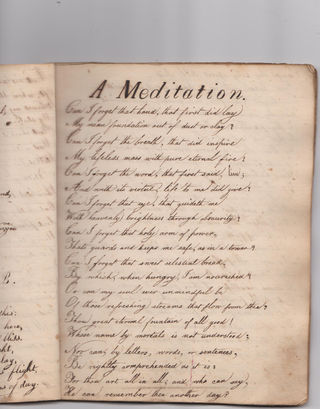 A Meditation.
Can I forget that hand, that first did lay
My mean foundation out of dust or clay?
Can I forget the breath, that did inspire
My lifeless mass with pure eternal fire?
Can I forget the word, that first said,
And with its virtue, life to me did give?
Can I forget that eye, that guideth me
With heavenly brightness through obscurity?
Can I forget that holy arm of power,
That guards and keeps me safe, as in a tower?
Can I forget that sweet celestial bread,
By which, when hungry, I am nourished?
Or can my soul ever unmindful be
Of those refreshing streams that flow from thee?
Thou great eternal fountain of all good!
Whose name by mortals is not understood;
Nor can, by letters, words, or sentences,
Be rightly comprehended as it is:
For thou art all in all; and who can say,
He can remember thee another day?
this:
here,
flight,
of day.